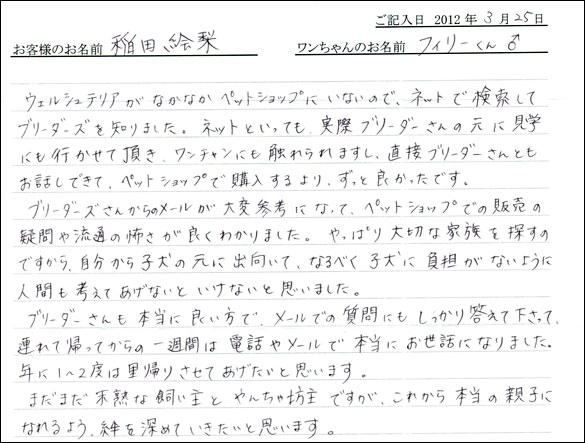 ご記入日 2012年3月25日
お客様のお名前 稲田絵梨 ワンちゃんのお名前 フィリーくん♂
ウェルシュテリアがなかなかペットショップにいないので、ネットで検索して
ブリーダーズを知りました。ネットといっても、実際ブリーダーさんの元に見学
にも行かせて頂き、ワンチャンにも触れられますし、直接ブリーダーさんとも
お話しできて、ペットショップで購入するより、ずっと良かったです。
ブリーダーズさんからのメールが大変参考になって、ペットショップでの販売の
疑問や流通の怖さが良くわかりました。やっぱり大切な家族を探すの
ですから、自分から子犬の元に出向いて、なるべく子犬に負担がないように
人間も考えてあげないといけないと思いました。
ブリーダーさんも本当に良い方で、メールでの質問にもしっかり答えて下さって、
連れて帰ってからの一週間は電話やメールで本当にお世話になりました。
年に1〜2度は里帰りさせてあげたいと思います。
まだまだ未熟な飼い主とやんちゃ坊主ですが、これから本当の親子に
なれるよう、絆を深めていきたいと思います。